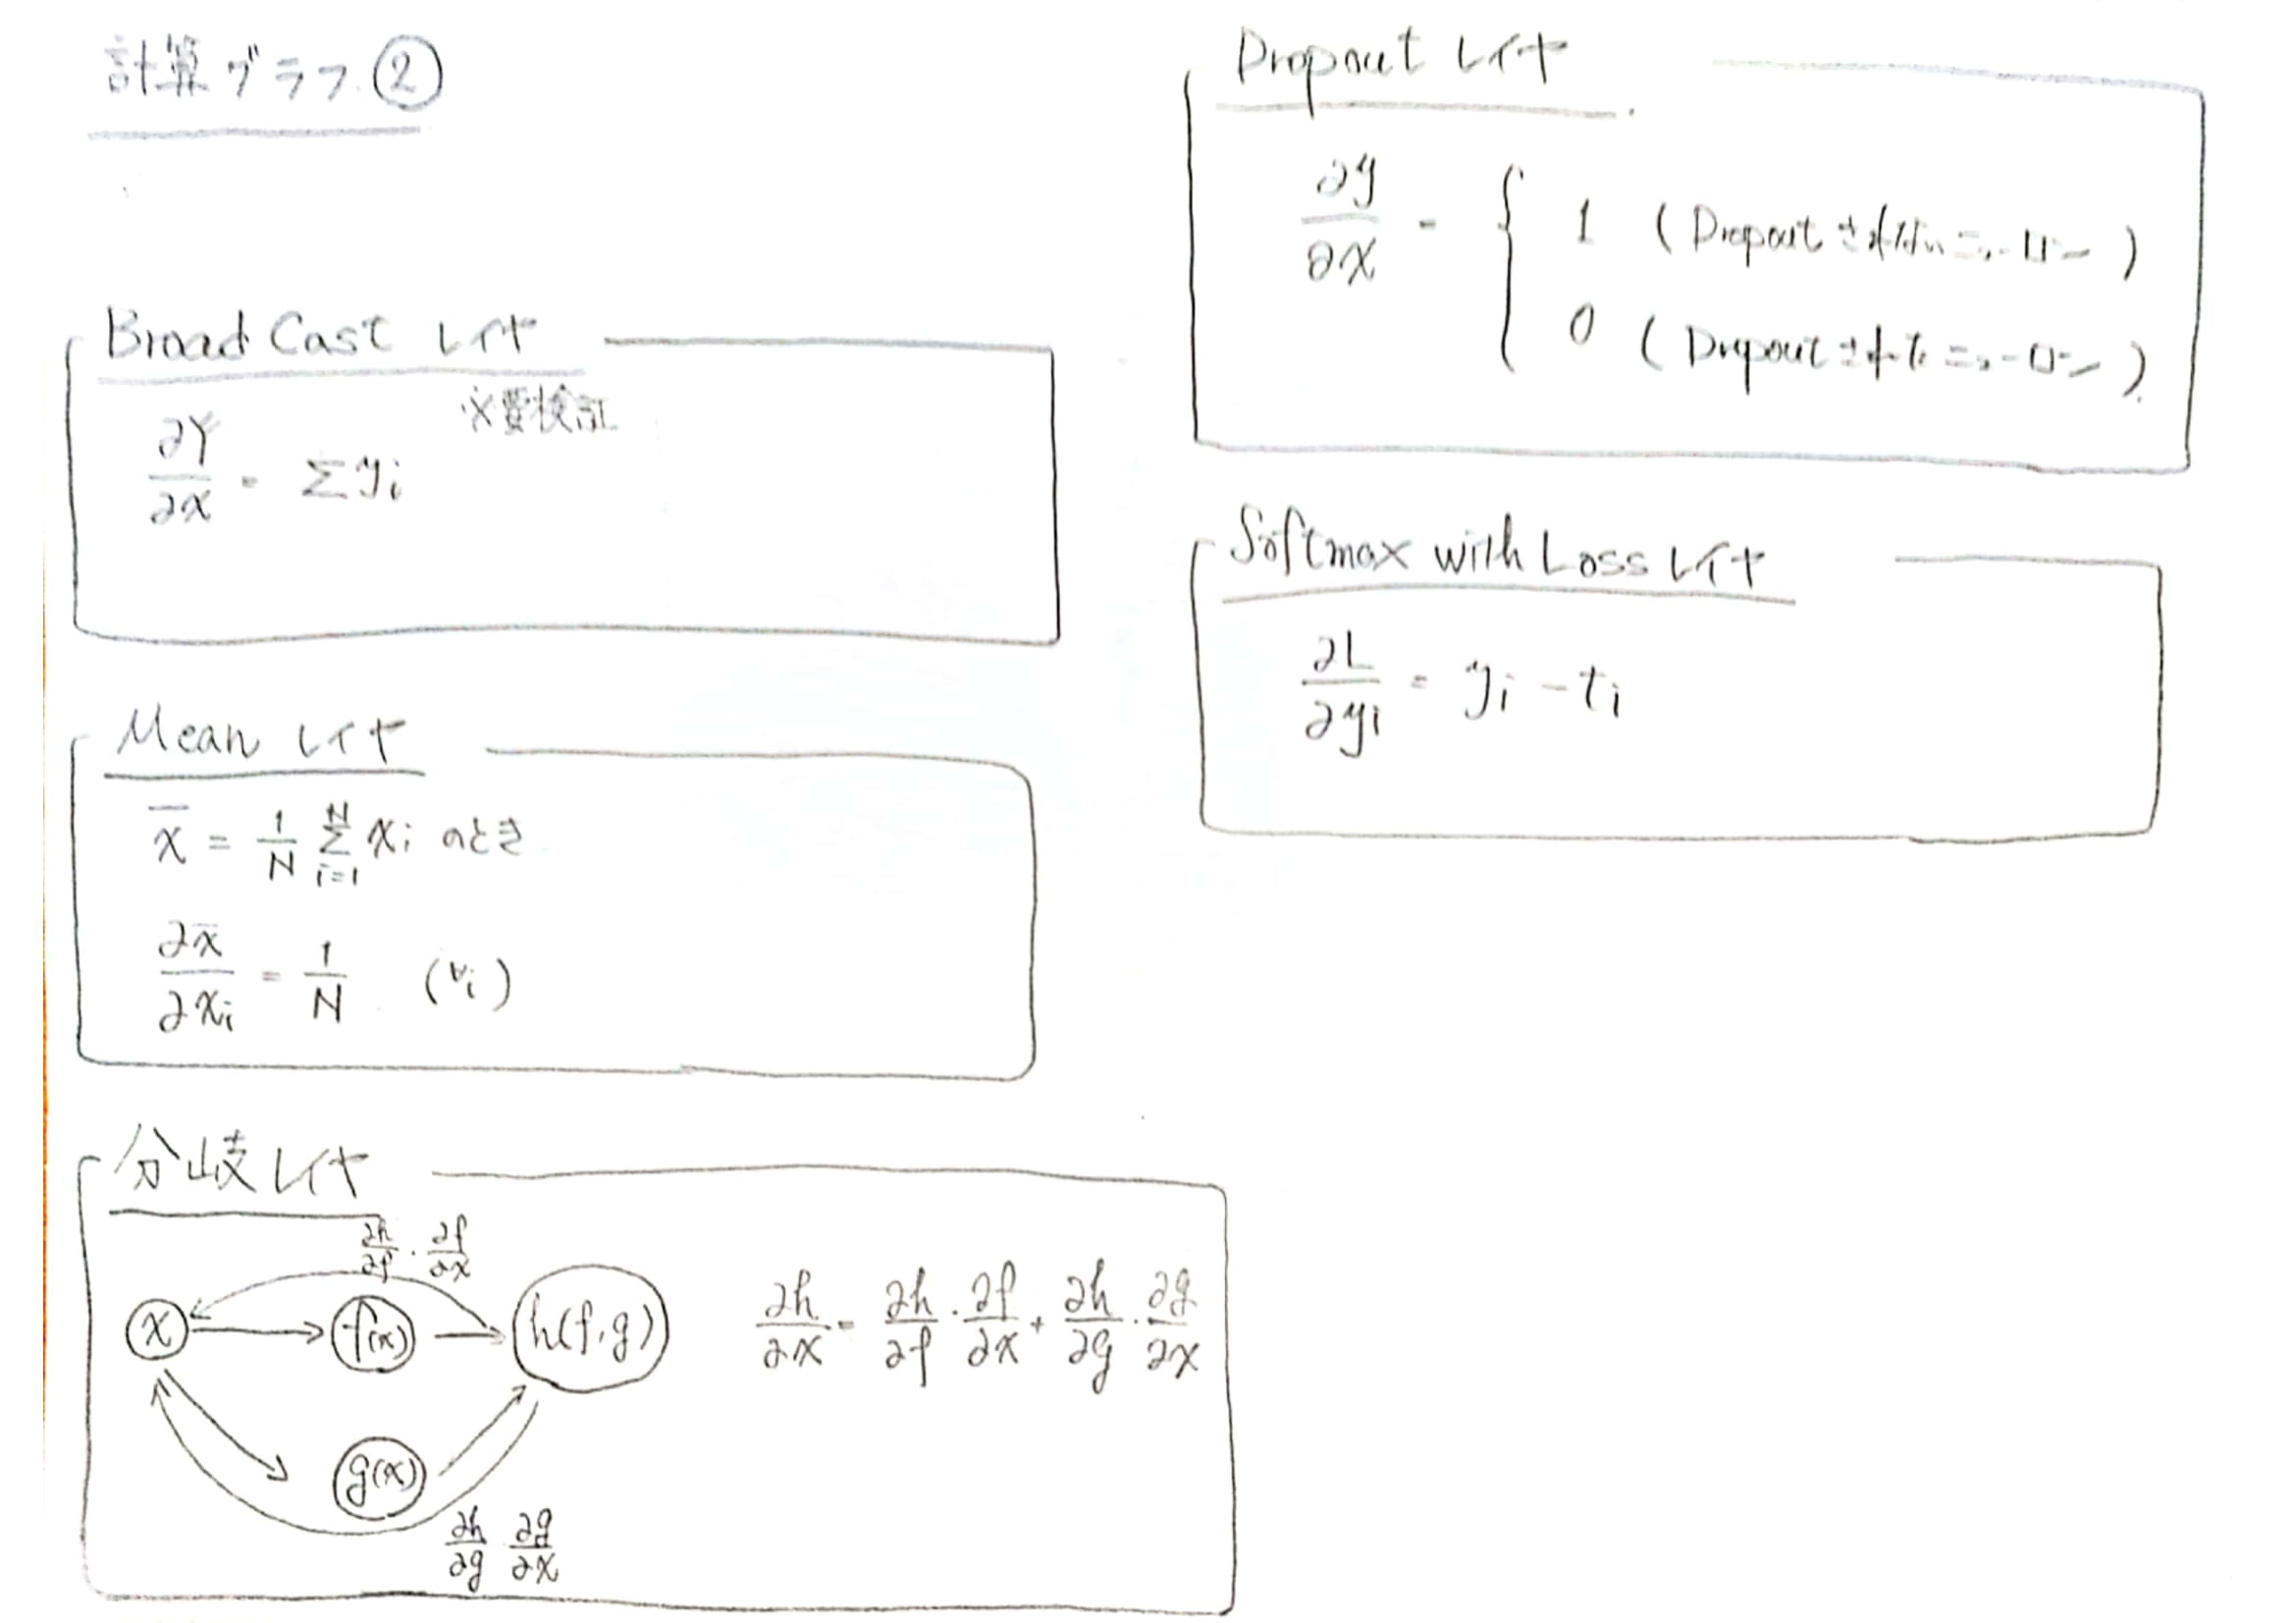 計算グラフ ②
Broad Cast レイヤ
※要検証
∂Y/∂x = Σ yi
Mean レイヤ
x̄ = 1/N Σ_{i=1}^{N} xi のとき
∂x̄/∂xi = 1/N (∀i)
分岐レイヤ
∂h/∂f · ∂f/∂x
x f(x) h(f,g)
∂h/∂x = ∂h/∂f · ∂f/∂x + ∂h/∂g · ∂g/∂x
g(x)
∂h/∂g ∂g/∂x
Dropout レイヤ
∂y/∂x = { 1 (Dropout されないニューロン)
0 (Dropout されたニューロン)
Softmax with Loss レイヤ
∂L/∂yi = yi - ti